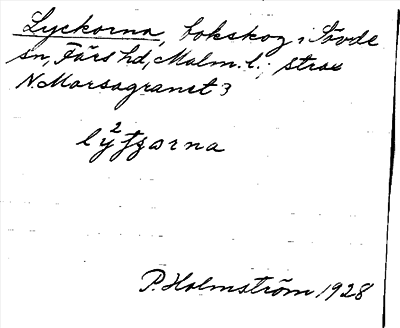 Lyckorna, bokskog i Sövde
sn, Färs hd, Malm. l.; strax
N Marsagranet 3
P. Holmström 1928